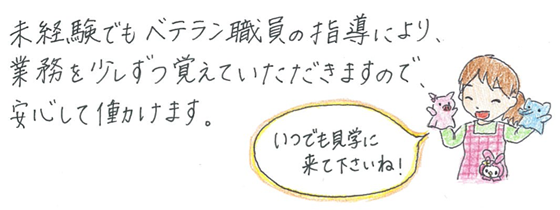 未経験でもベテラン職員の指導により、
業務を少しずつ覚えていただきますので、
安心して働けます。
いつでも見学に
来て下さいね!